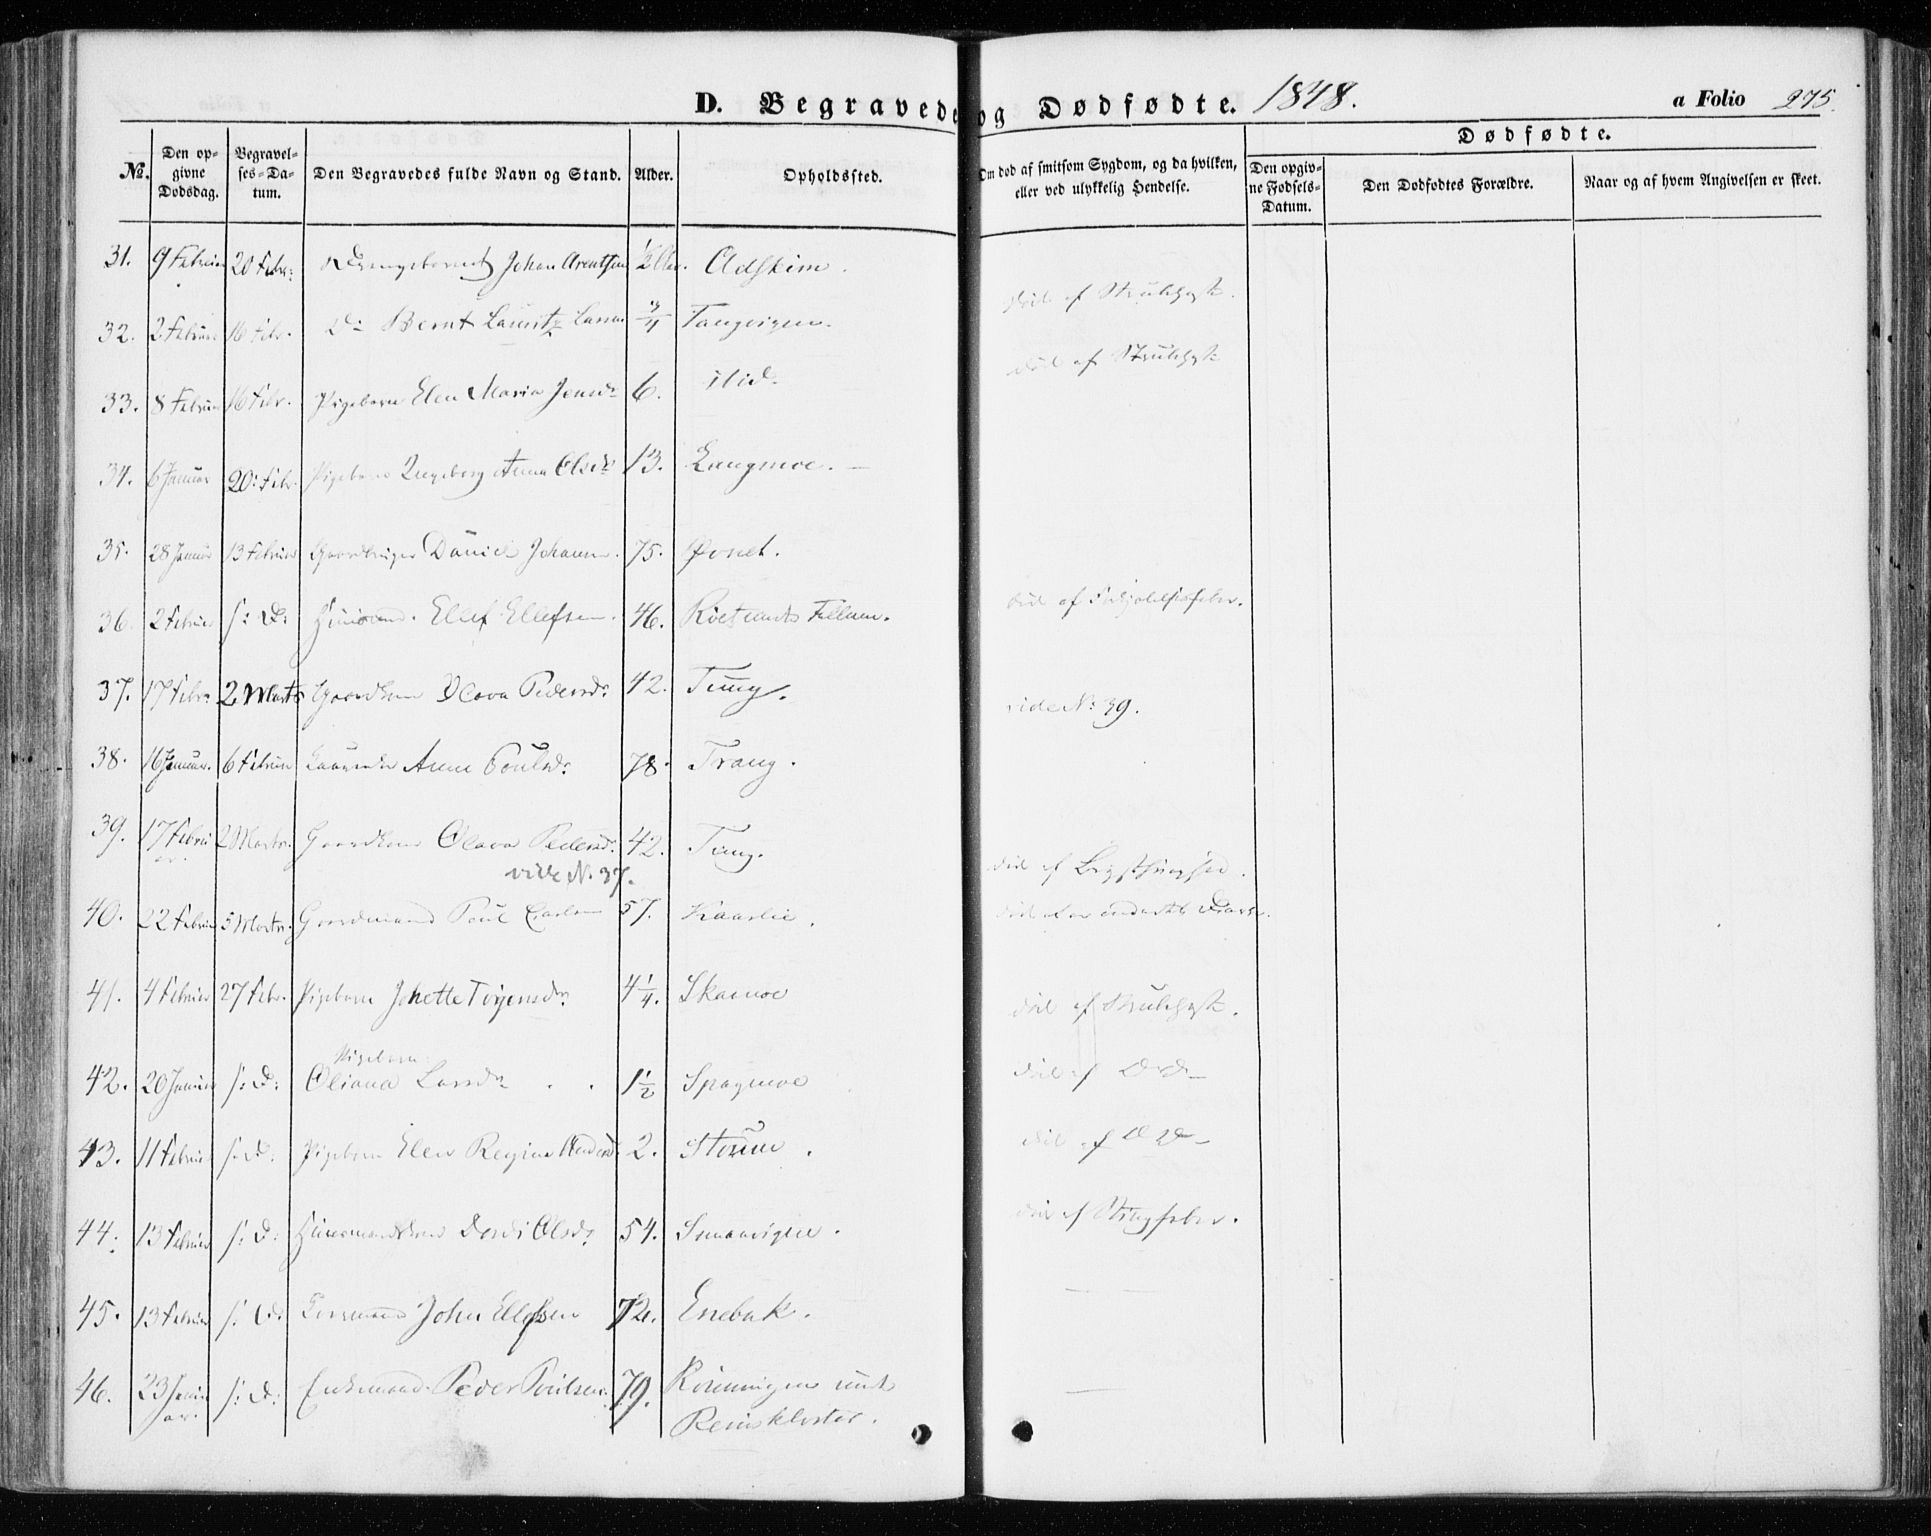 D. Begravede og Dødfødte. 1848. a Folio 275.
Dødfødte.
No. Den opgivne Dødsdag. Begravelses-Datum. Den Begravedes fulde Navn og Stand. Alder. Opholdssted. Om død af smitsom Sygdom, og da hvilken, eller ved ulykkelig Hendelse. Den opgivne Fødsels-Datum. Den Dødfødtes Forældre. Naar og af hvem Angivelsen er skeet.
31. 9 Februar 20 Febr: Drengebarnet Johan Arentsen ½ Aar. Adsheim.
32. 2 Februar 16 Febr. D: Bernt Lauritz Larsen 3/4 Tangvigen. død af Strubehoste.
33. 8 Februar 16 Febr. Pigebarn Elen Maria Jensdr 6. død af Strubehoste
34. 6 Januar 20: Febr. Pigebarn Ingeborg Anna Olsdr 13. Langmoe. —
35. 28 Januar 13 Februar Gaardbruger Daniel Johansen. 75. Øvnet.
36. 2 Februar s: D: Huusmand. Ellef Ellefsen. 46. død af Forkjølelsesfeber.
37. 17 Febr. 2 Marts Gaardkone Olava Pedersdr. 42. Tung. vide No: 39.
38. 16 Januar. 6 Februar Anne Poulsdr. 78. Trang.
39. 17 Februar. 2 Marts. Gaardkone Olava Pedersdr. 42. Tung. død af Brystsyge.
vide No. 37.
40. 22 Februar 5 Marts. Gaardmand Poul 57. Kaarlie.
41. 4 Februar 27 Febr. Pigebarn Johette Torgersdr. 4¼. Skamoe død af Strubehoste.
42. 20 Januar s: D: Pigebarn Oliana Larsdr 1½ Spagmoe død af D: D: —
43. 11 Februar s: D. Pigebarn Elen Regine 2. død af D D —
44. 13 Februar s: D: Huusmandskone Dordi Olsdr. 54. Smaavigen.
45. 13 Februar s: D: John Ellefsen 72. Enebak.
46. 23 Januar. s: D: Enkemand Peder Poulsen. 79. Rønningen und
Reinskloster.